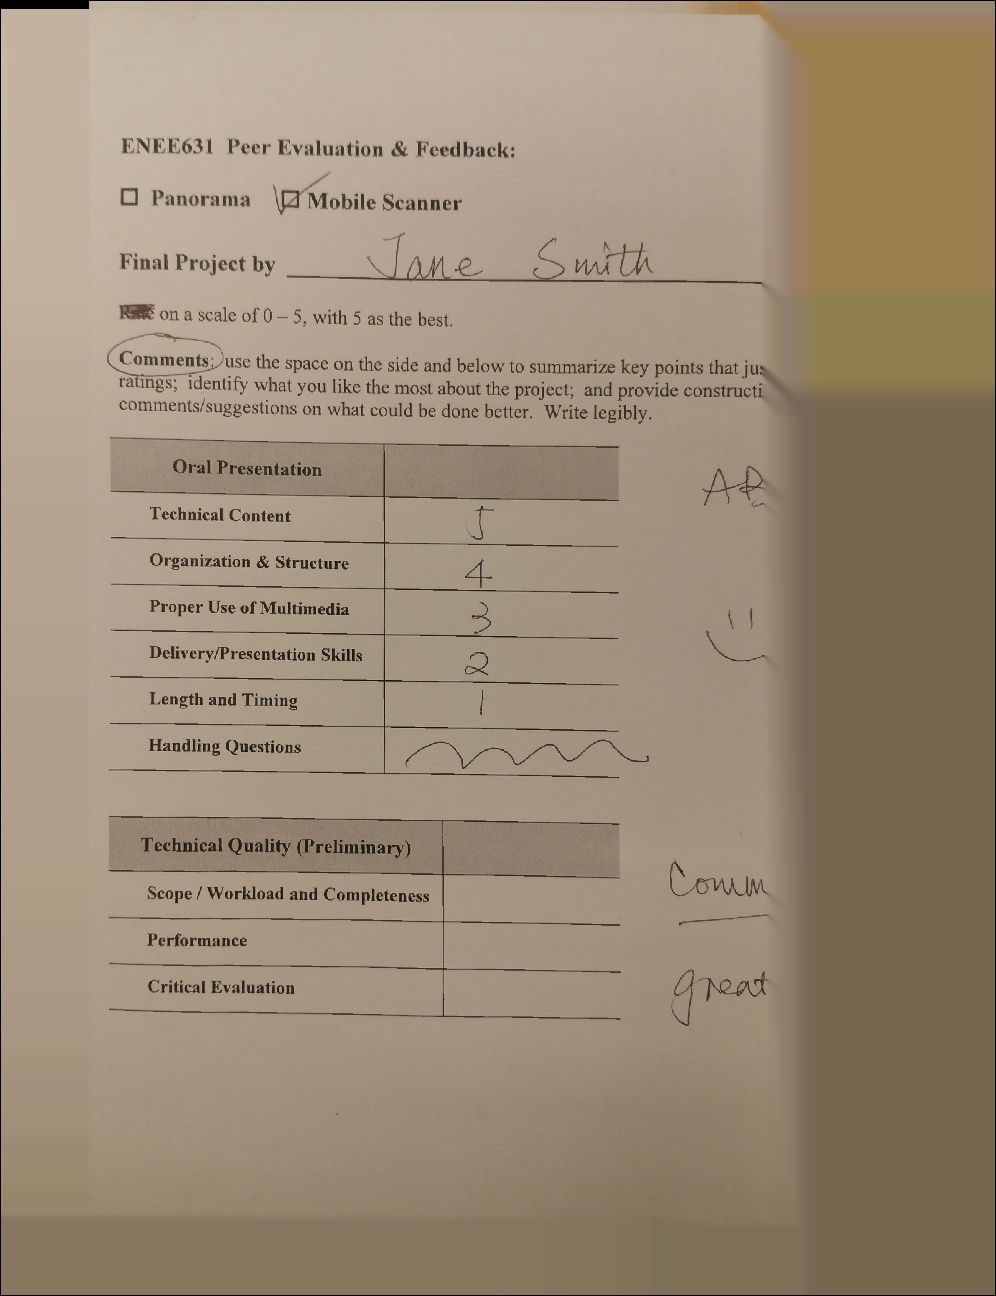 ENEE631 Peer Evaluation & Feedback:
Panorama Mobile Scanner
Final Project by Jane Smith
on a scale of 0 – 5, with 5 as the best.
Comments: use the space on the side and below to summarize key points that
ratings; identify what you like the most about the project; and provide constructi
comments/suggestions on what could be done better. Write legibly.
Oral Presentation
Technical Content 5
Organization & Structure 4
Proper Use of Multimedia 3
Delivery/Presentation Skills 2
Length and Timing 1
Handling Questions
Technical Quality (Preliminary)
Scope / Workload and Completeness
Comm
Performance
Critical Evaluation
great